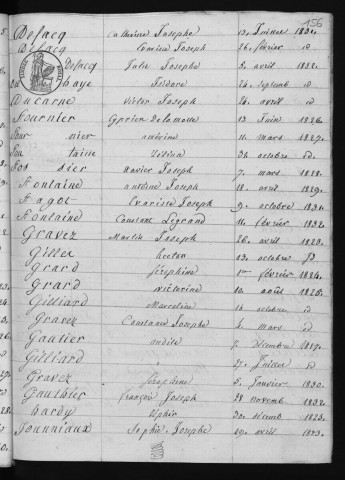 156
Defacq Catherine Josephe 12 Juillet 1831.
Defacq Louvise Joseph 26. fevrier id
Defacq Julie Joseph 5. avril 1832.
haye Isidore 24. Septemb id
Ducarne victor Joseph 24. avril id
Fournier Cyprien Delamotte 13 Juin 1826.
Four nier 11. mars 1827.
Fon taine Zélina 31. octobre id.
Fos sier xavier Joseph 7. mars 1828.
Fontaine antoine Joseph 18. avril 1829.
Fagot Evariste Joseph 9. octobre 1831.
Fontaine Constant Legrand 11. février 1832.
Gravez Martin Joseph 26. avril 1823.
Gilles hector 03. octobre id
Grard Séraphine 1er février 1824.
Grard victorine 10. août 1825.
Gilliard Marceline 16 octobre id
Gravez Constance Josephe 6 mars id
Gautier 7. décembre 1817.
Gilliard 27. Juillet id
Gravez Séraphine 5. Janvier 1830.
Gauthier françois Joseph 28 novemb 1832.
hardy Elphir 30. décemb 1823.
Jounniaux Sophie Josephe 29. avril 1823.